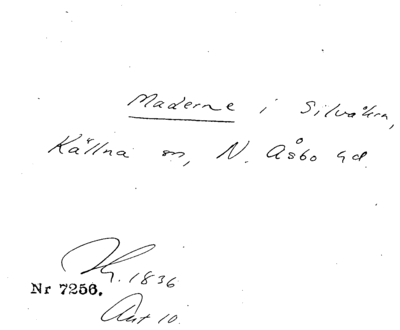 Maderne i Silvåkra,
Källna sn, N. Åsbo hd.
1836
Nr 7256.
Ant 10.